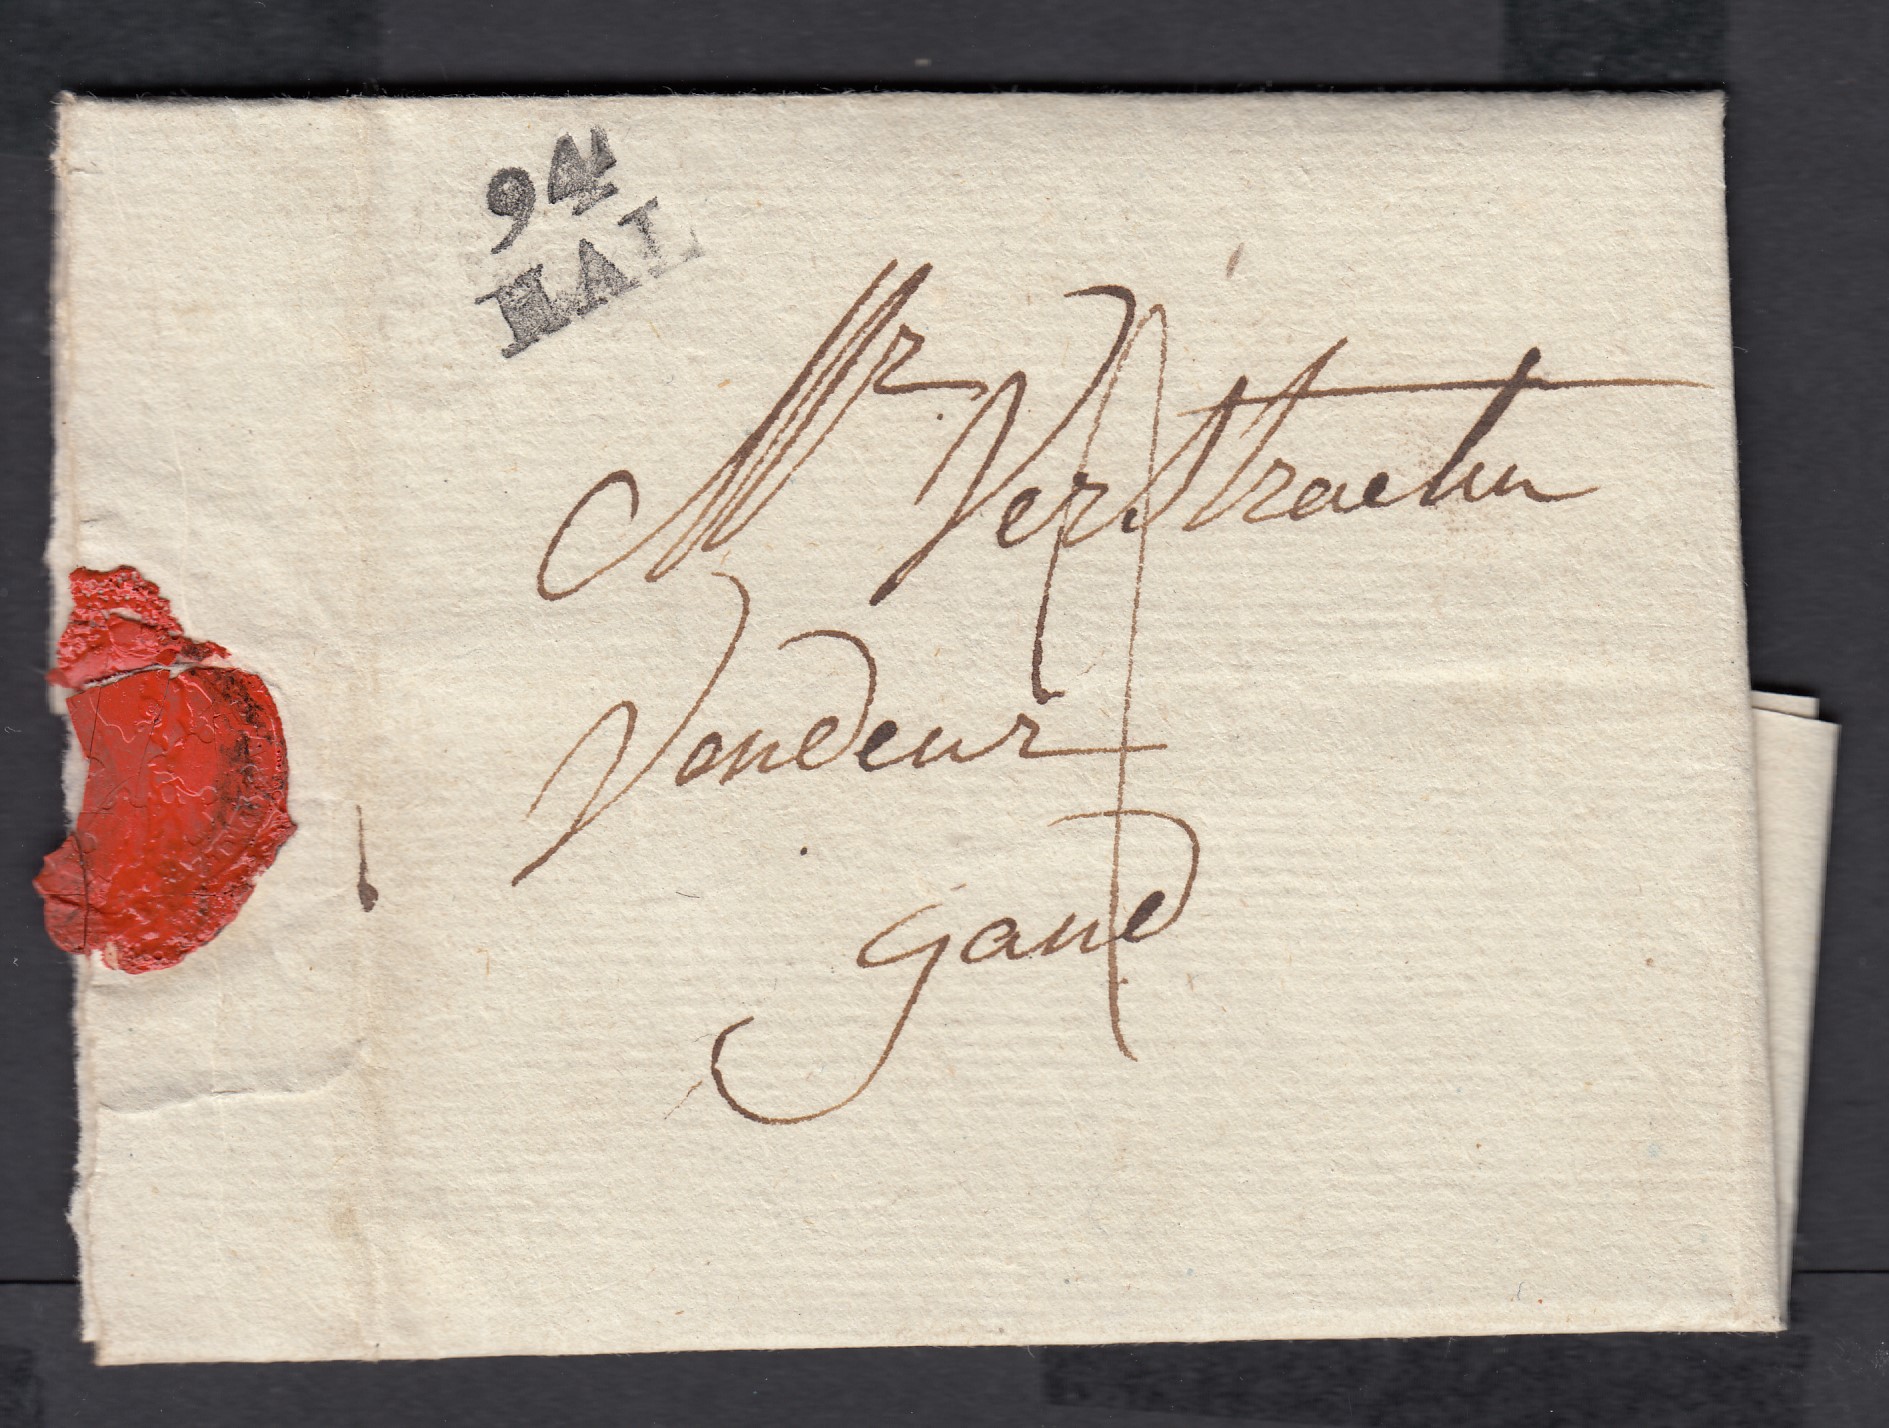 94
HAL
Mr Verstraeten
Vendeur
gand